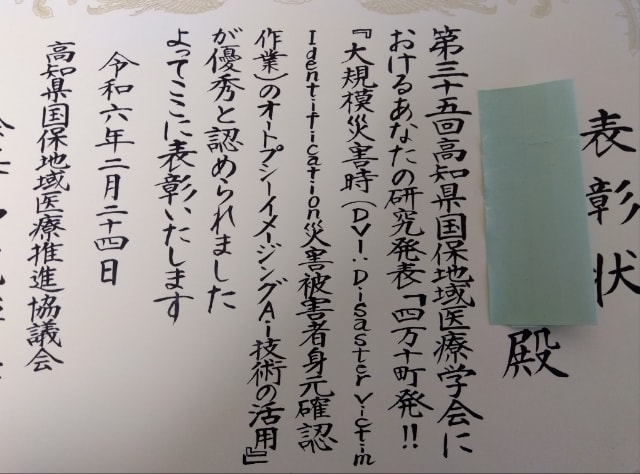 表彰状
殿
第三十五回高知県国保地域医療学会に
おけるあなたの研究発表「四万十町発!!
『大規模災害時(DVI:Disaster victim
Identification災害被害者身元確認
作業)のオートプシーイメージングAi技術の活用』
が優秀と認められました
よってここに表彰いたします
令和六年二月二十四日
高知県国保地域医療推進協議会